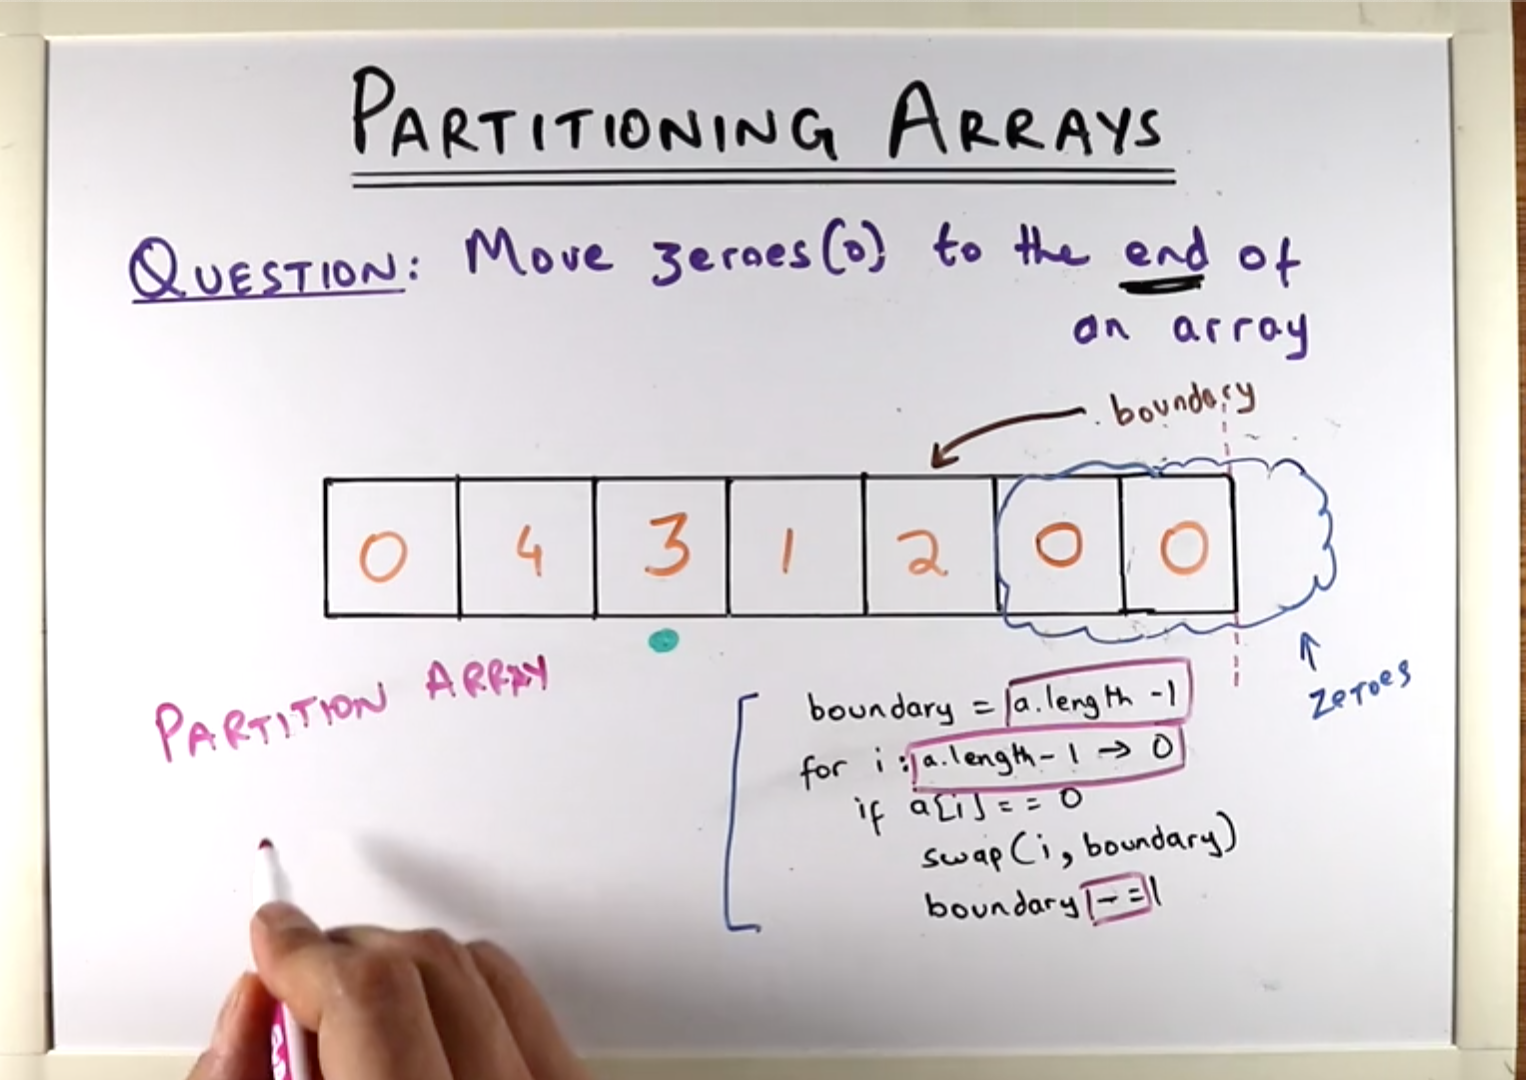 PARTITIONING ARRAYS
QUESTION: Move zeroes(0) to the end of
an array
boundary
0 4 3 1 2 0 0
zeroes
PARTITION ARRAY
boundary = a.length -1
for i : a.length-1 → 0
if a[i] == 0
swap(i, boundary)
boundary -=1